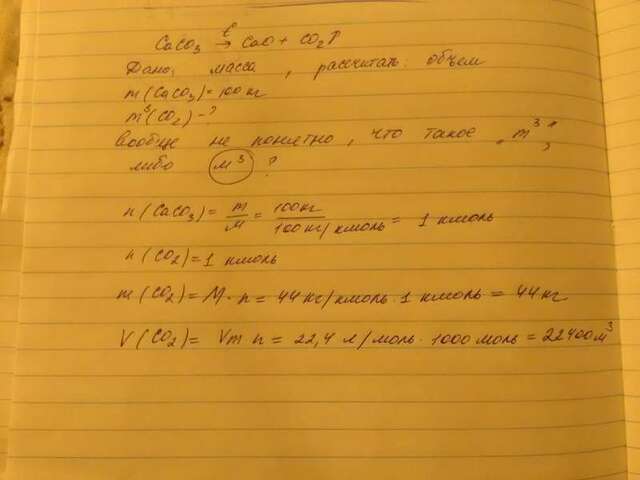 t
CaCO3 → CaO + CO2↑
Дано: масса, рассчитать: объем
m(CaCO3)=100 кг
m³(CO2)-?
вообще не понятно, что такое „m³",
либо м³ ?
n(CaCO3) = m/M = 100кг/100кг/кмоль = 1 кмоль
n(CO2)=1 кмоль
m(CO2)= M · n = 44 кг/кмоль · 1 кмоль = 44 кг
V(CO2)= Vm n = 22,4 л/моль · 1000 моль = 22400м³